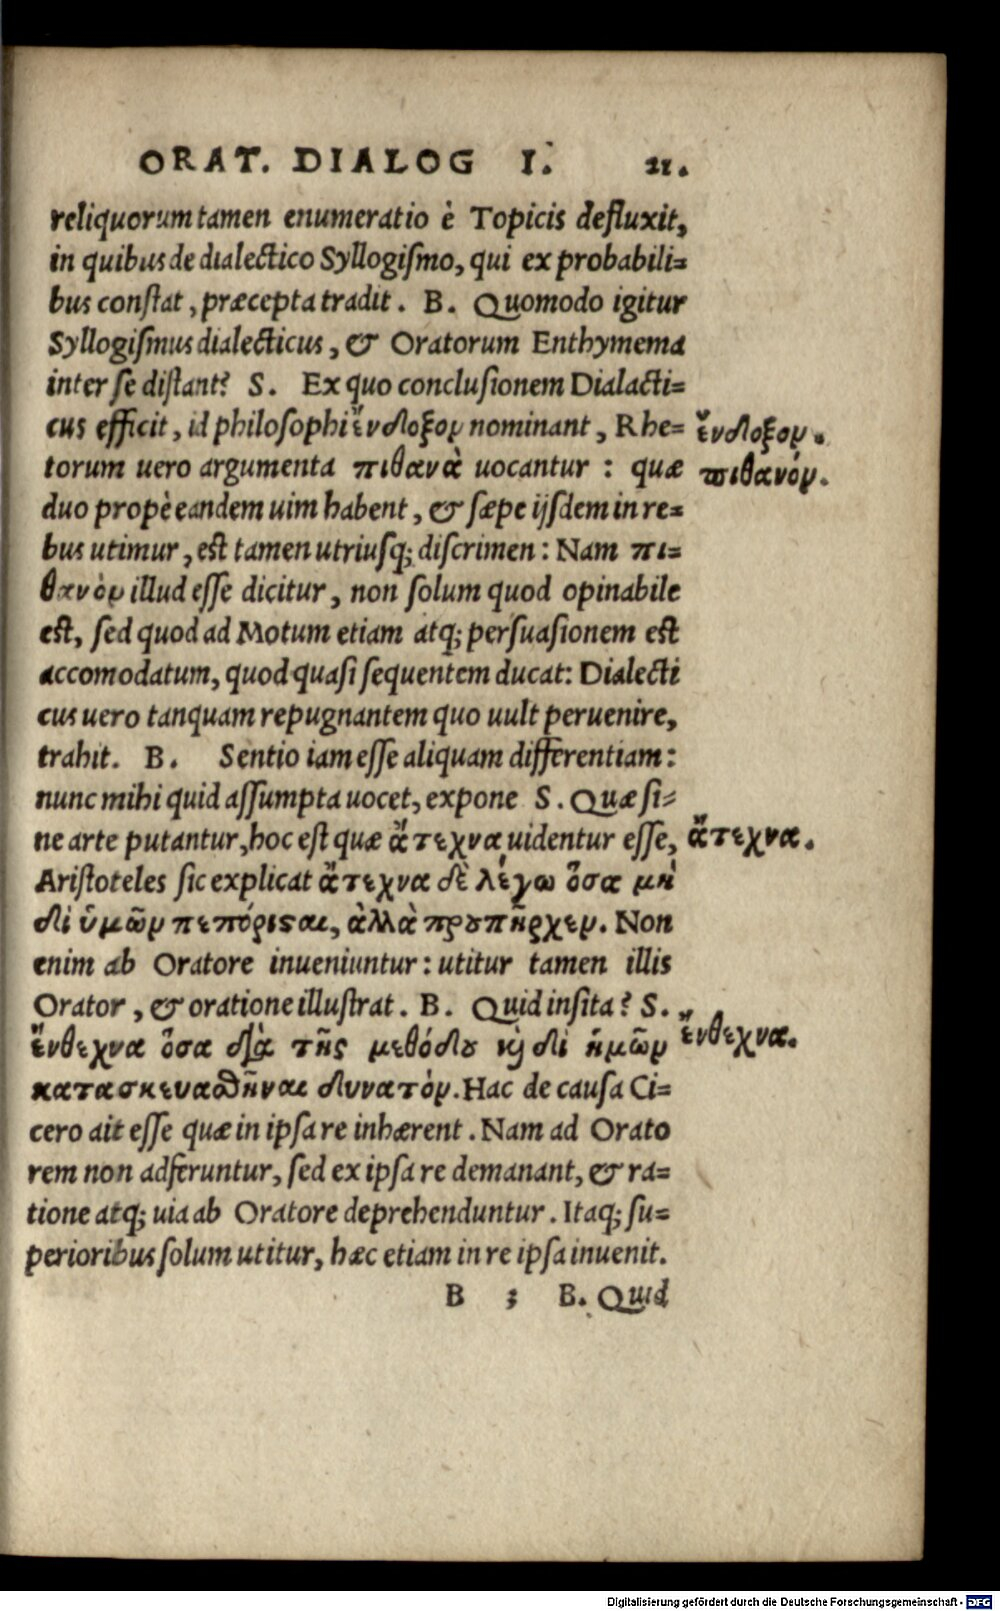 ORAT. DIALOG I. 21.
reliquorum tamen enumeratio è Topicis defluxit,
in quibus de dialectico Syllogiſmo, qui ex probabili=
bus conſtat, præcepta tradit. B. Quomodo igitur
Syllogiſmus dialecticus, & Oratorum Enthymema
inter ſe diſtant? S. Ex quo concluſionem Dialacti=
cus efficit, id philoſophi ἔνδοξον nominant, Rhe=
ἔνδοξον.
torum uero argumenta πιθανὰ uocantur: quæ
πιθανόν.
duo propè eandem uim habent, & ſæpe ijſdem in re=
bus utimur, eſt tamen utriuſq; diſcrimen: Nam πι=
θανὸν illud eſſe dicitur, non ſolum quod opinabile
eſt, ſed quod ad Motum etiam atq; perſuaſionem eſt
accomodatum, quod quaſi ſequentem ducat: Dialecti
cus uero tanquam repugnantem quo uult peruenire,
trahit. B. Sentio iam eſſe aliquam differentiam:
nunc mihi quid aſſumpta uocet, expone S. Quæ ſi=
ne arte putantur, hoc eſt quæ ἄτεχνα uidentur eſſe,
ἄτεχνα.
Ariſtoteles ſic explicat ἄτεχνα δὲ λέγω ὅσα μὴ
δἰ ὑμῶν πεπόρισαι, ἀλλὰ προυπῆρχεν. Non
enim ab Oratore inueniuntur: utitur tamen illis
Orator, & oratione illuſtrat. B. Quid inſita? S.
ἔνθεχνα ὅσα διὰ τῆς μεθόδου κὶ δἰ ἡμῶν
ἔνθεχνα.
κατασκευασθῆναι δυνατόν. Hac de cauſa Ci=
cero ait eſſe quæ in ipſa re inhærent. Nam ad Orato
rem non adferuntur, ſed ex ipſa re demanant, & ra=
tione atq; uia ab Oratore deprehenduntur. Itaq; ſu=
perioribus ſolum utitur, hæc etiam in re ipſa inuenit.
B 3 B. Quid
Digitalisierung gefördert durch die Deutsche Forschungsgemeinschaft - DFG